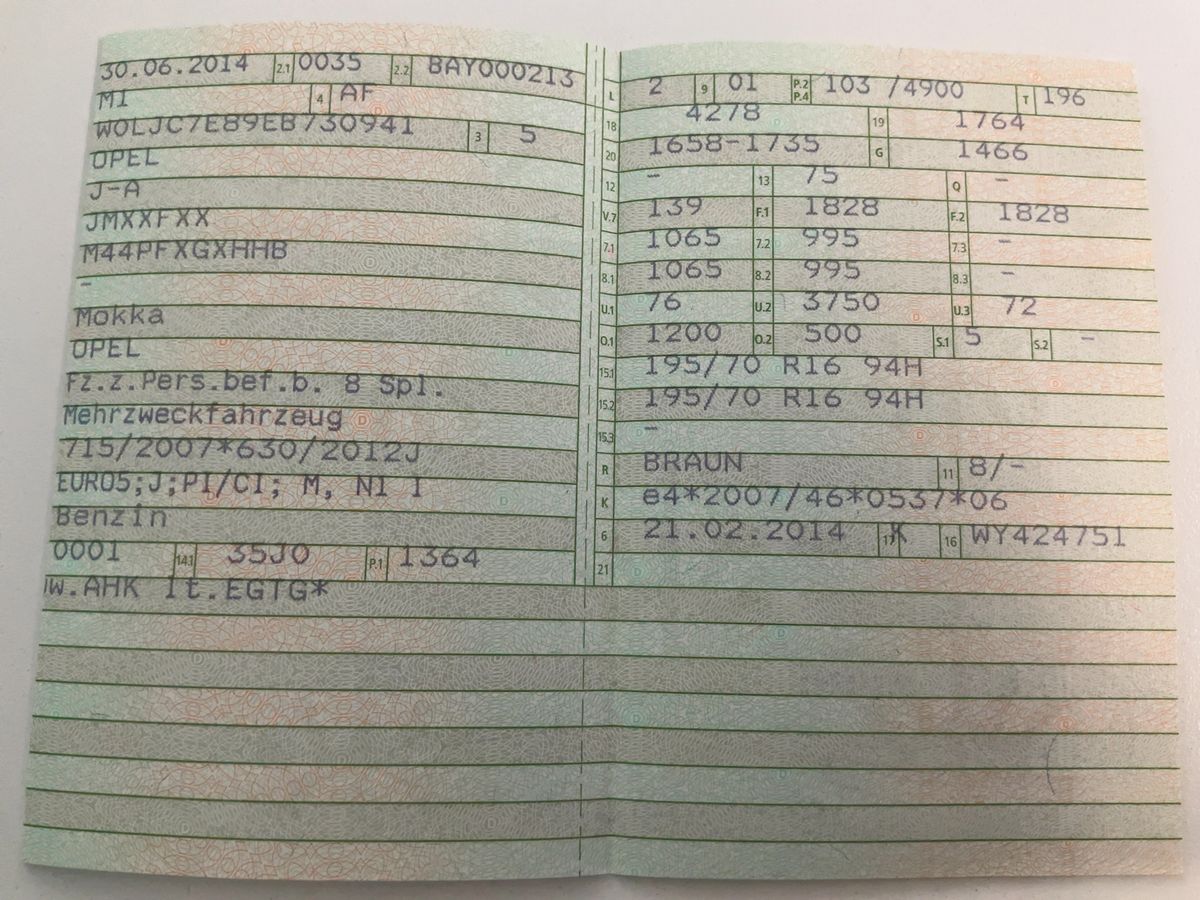 30.06.2014 2.1 0035 2.2 BAY000213
M1 4 AF
W0LJC7E89EB730941 3 5
OPEL
J-A
JMXXFXX
M44PFXGXHHB
-
Mokka
OPEL
Fz.z.Pers.bef.b. 8 Spl.
Mehrzweckfahrzeug
715/2007*630/2012J
EURO5;J;PI/CI; M, N1 I
Benzin
0001 14.1 35J0 P.1 1364
w.AHK lt.EGTG*
L 2 9 01 P.2 P.4 103 /4900 T 196
18 4278 19 1764
20 1658-1735 G 1466
12 - 13 75 Q -
V.7 139 F.1 1828 F.2 1828
7.1 1065 7.2 995 7.3 -
8.1 1065 8.2 995 8.3 -
U.1 76 U.2 3750 U.3 72
O.1 1200 O.2 500 S.1 5 S.2 -
15.1 195/70 R16 94H
15.2 195/70 R16 94H
15.3 -
R BRAUN 11 8/-
K e4*2007/46*0537*06
6 21.02.2014 17 K 16 WY424751
21